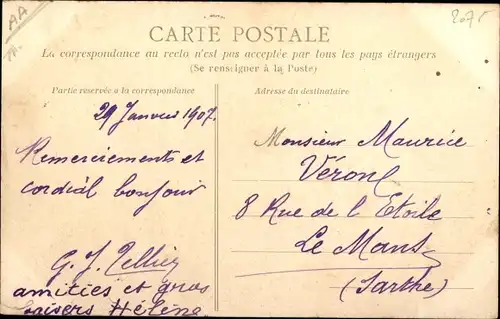 AA
2075
CARTE POSTALE
La correspondance au recto n'est pas acceptée par tous les pays étrangers
(Se renseigner à la Poste)
Partie reservée a la correspondance
29 Janvier 1907.
Remerciements et
cordial bonjour
G. J. Tellier
amitiés et gros
baisers Hélène
Adresse du destinataire
Monsieur Maurice
Véron
8 Rue de l'Etoile
Le Mans
(Sarthe)